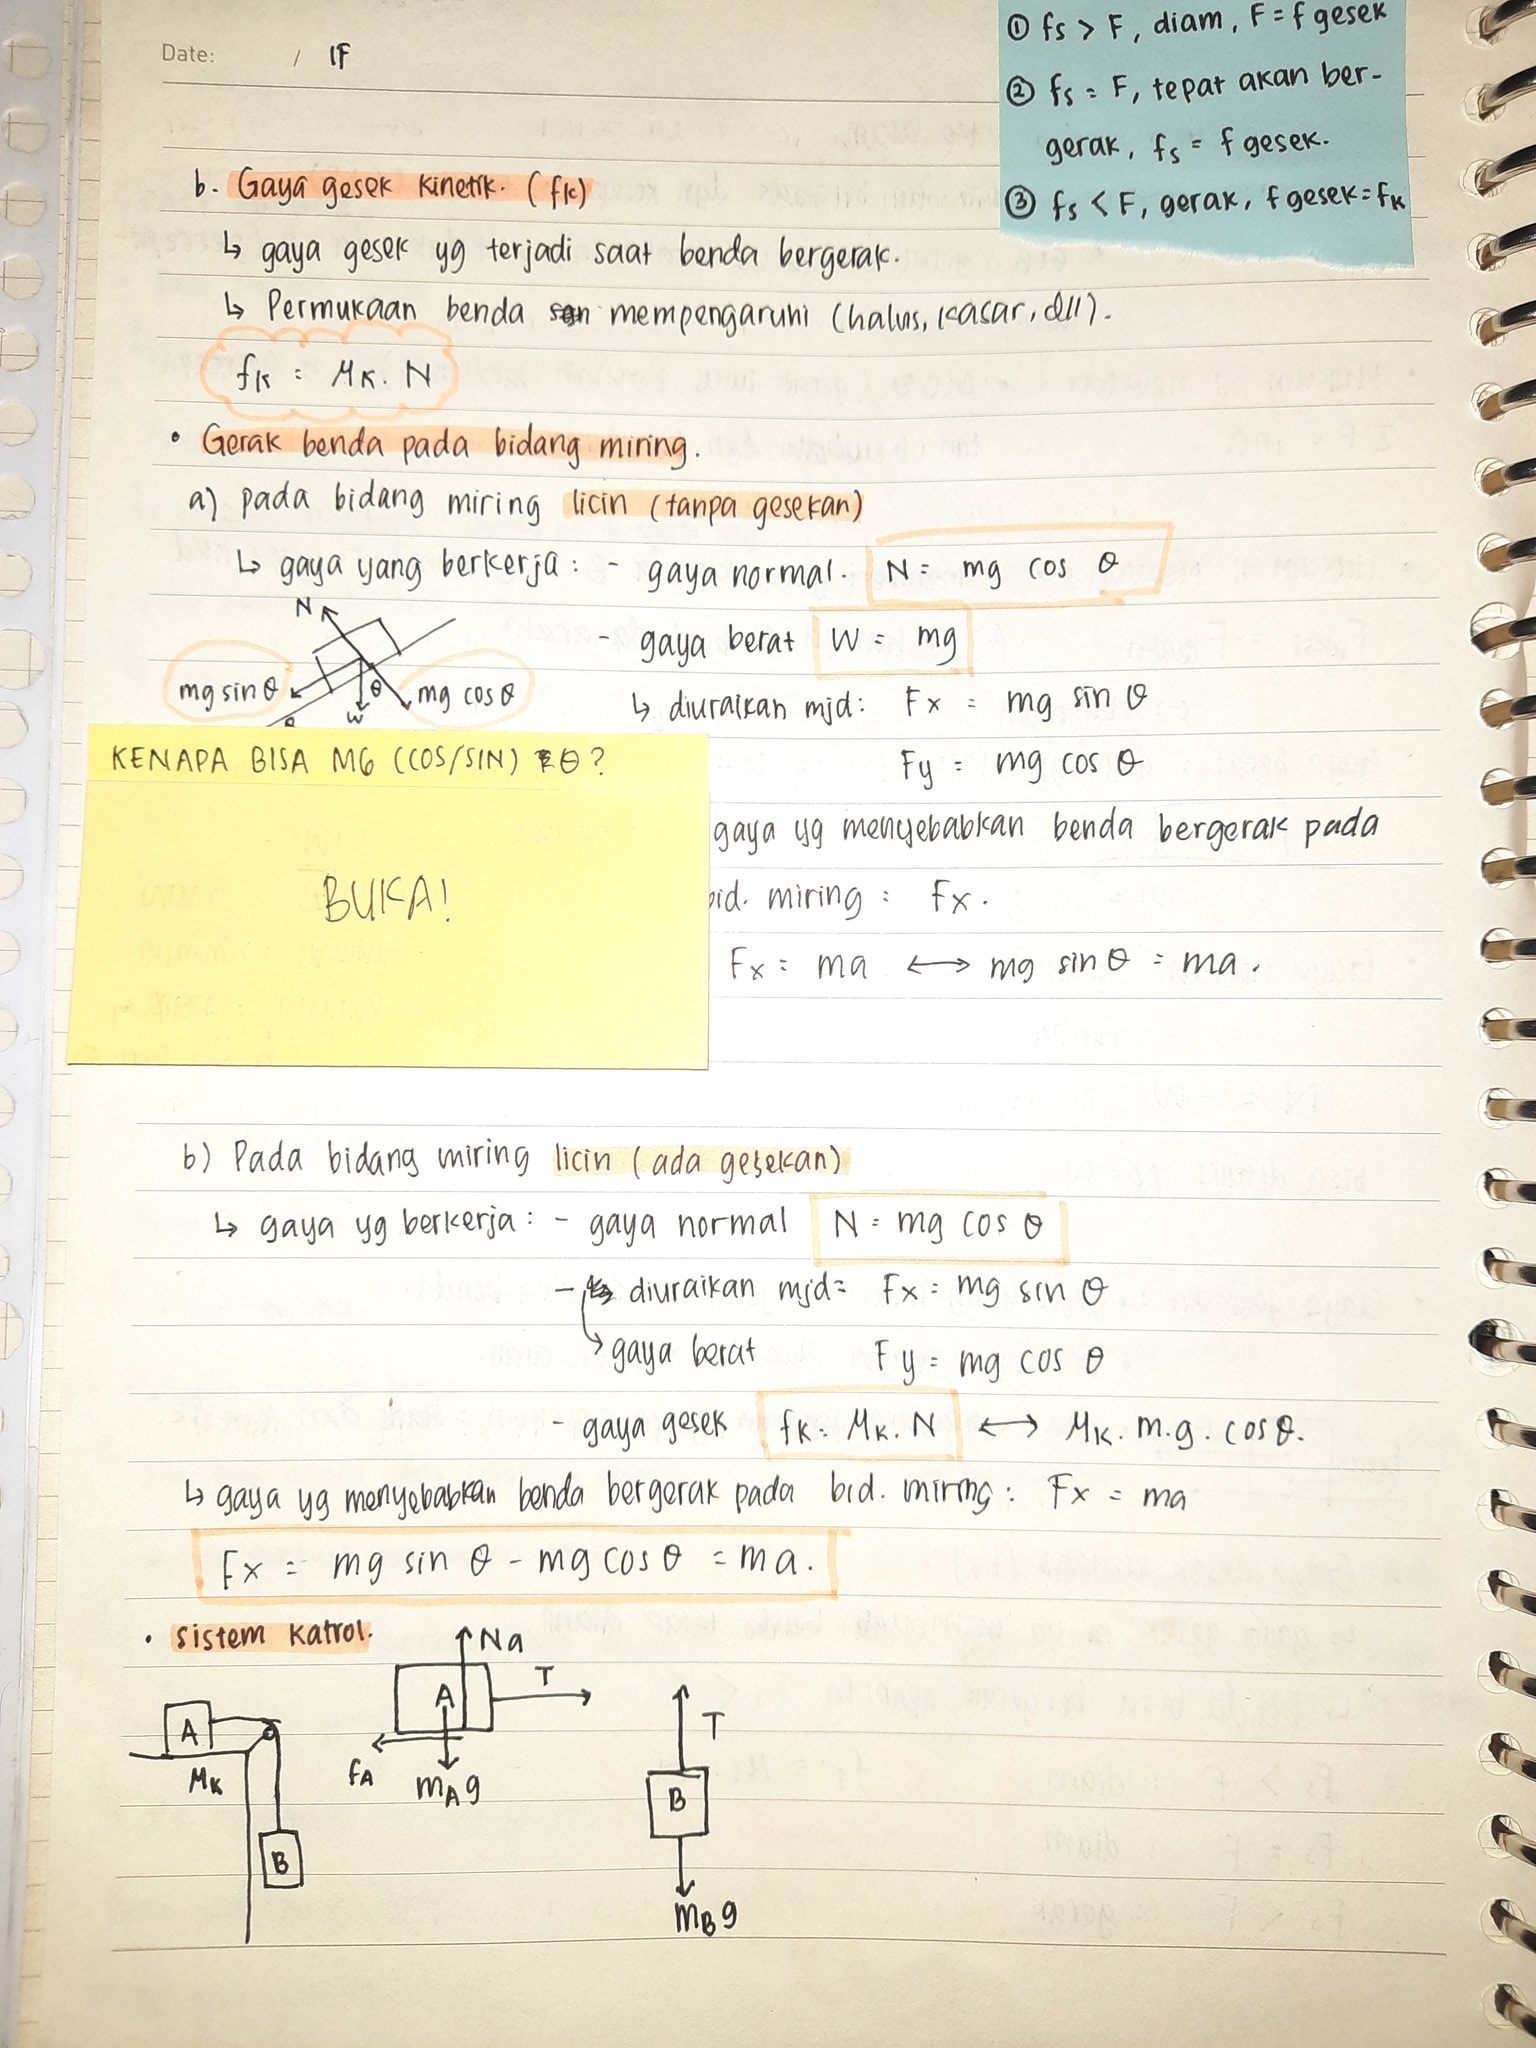 Date: / IF
① fs > F, diam, F = f gesek
② fs = F, tepat akan ber-
gerak, fs = f gesek.
③ fs < F, gerak, f gesek = fk
b. Gaya gesek kinetik. (fk)
↳ gaya gesek yg terjadi saat benda bergerak.
↳ Permukaan benda mempengaruhi (halus, kasar, dll).
fk = μk. N
• Gerak benda pada bidang miring.
a) pada bidang miring licin (tanpa gesekan)
↳ gaya yang berkerja : - gaya normal. N = mg cos θ
- gaya berat W = mg
↳ diuraikan mjd: Fx = mg sin θ
Fy = mg cos θ
N
mg sin θ
θ
W
mg cos θ
θ
KENAPA BISA MG (COS/SIN) θ?
BUKA!
gaya yg menyebabkan benda bergerak pada
bid. miring : Fx.
Fx = ma ⟷ mg sin θ = ma.
b) Pada bidang miring licin (ada gesekan)
↳ gaya yg berkerja : - gaya normal N = mg cos θ
- diuraikan mjd= Fx = mg sin θ
gaya berat Fy = mg cos θ
- gaya gesek fk = μk. N ⟷ μk. m.g. cos θ.
↳ gaya yg menyebabkan benda bergerak pada bid. miring : Fx = ma
Fx = mg sin θ - mg cos θ = ma.
• sistem katrol.
A
μk
B
Na
A
T
fA
mAg
T
B
mBg